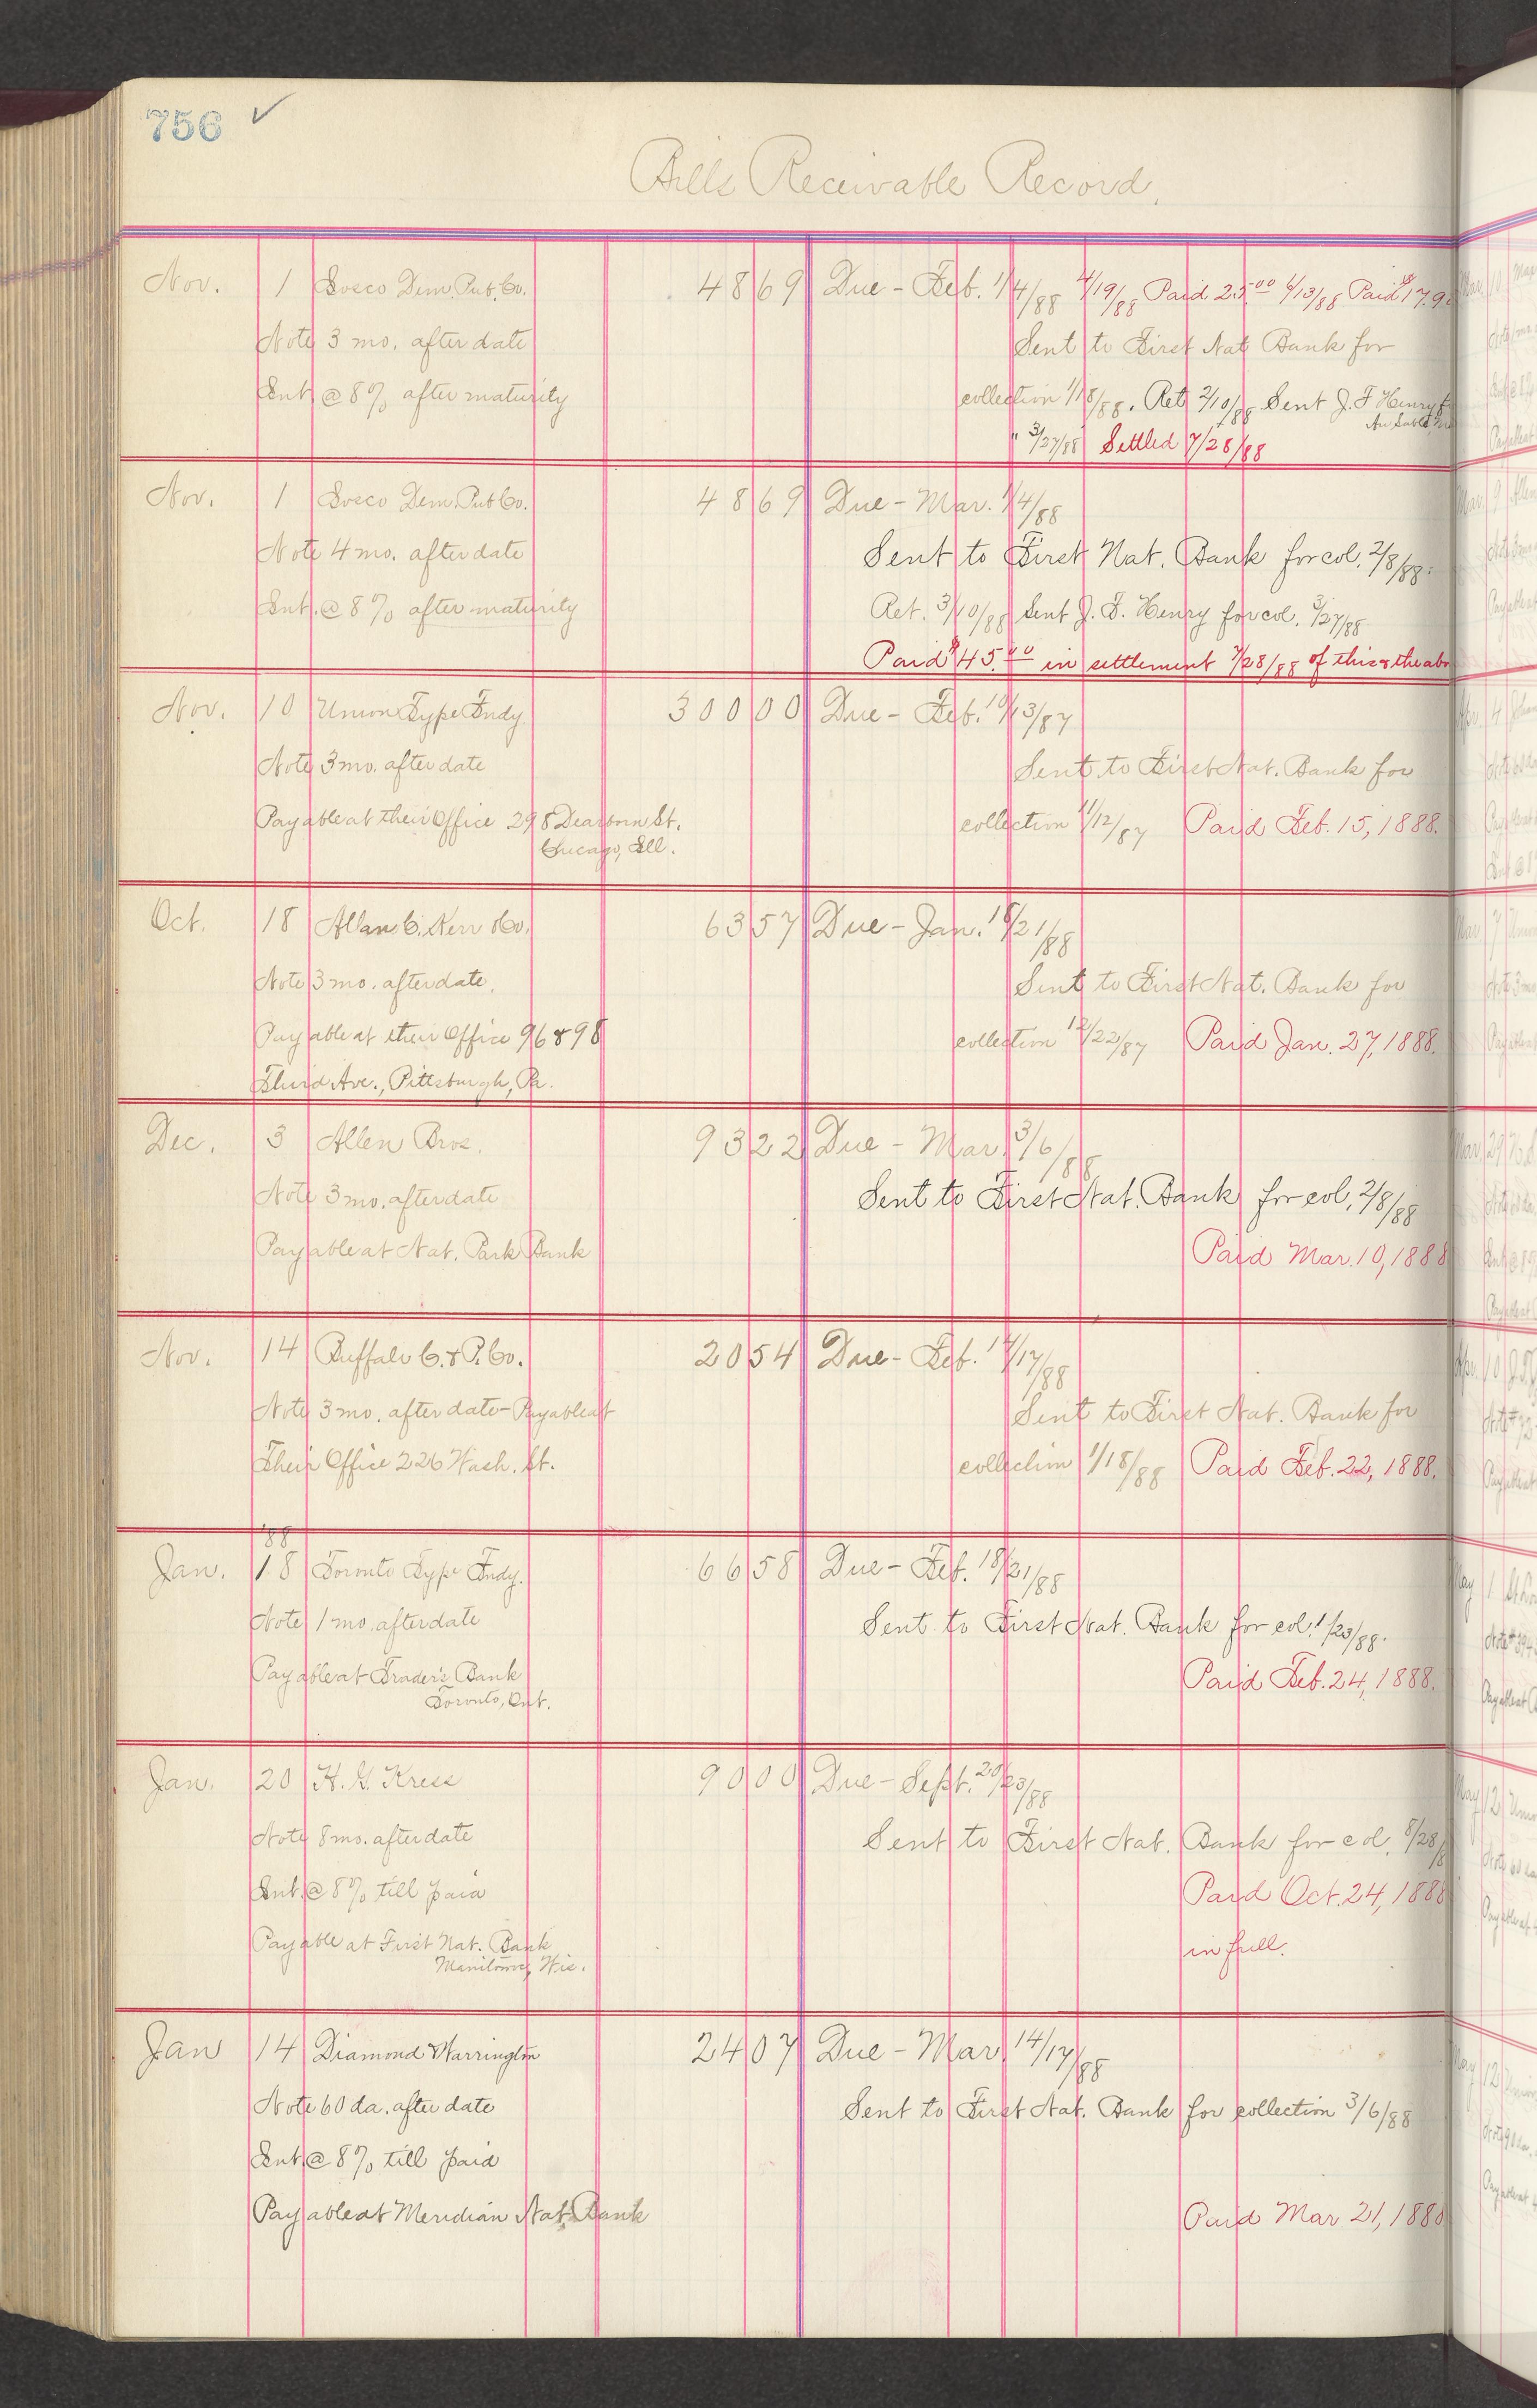 756 ✓
Bills Receivable Record.
Nov. 1 Iosco Dem. Pub. Co. 48 69 Due - Feb. 1/4/88 4/19/88 Paid 25.00 6/13/88 Paid $17.9
Note 3 mo. after date Sent to First Nat Bank for
Int. @ 8% after maturity collection 1/18/88. Ret 2/10/88 Sent J. F Henry
Au Sable
" 3/27/88 Settled 7/28/88
Nov. 1 Iosco Dem. Pub Co. 48 69 Due - Mar. 1/4/88
Note 4 mo. after date Sent to First Nat. Bank for col. 2/8/88.
Int. @ 8% after maturity Ret. 3/10/88 Sent J. F. Henry for col. 3/27/88
Paid $45.00 in settlement 7/28/88 of this & the abo
Nov. 10 Union Type Fndy 300 00 Due - Feb. 10/13/87
Note 3 mo. after date Sent to First Nat. Bank for
Payable at their Office 298 Dearborn St. collection 11/12/87 Paid Feb. 15, 1888.
Chicago, Ill.
Oct. 18 Allan C. Kerr & Co. 63 57 Due - Jan. 18/21/88
Note 3 mo. after date. Sent to First Nat. Bank for
Payable at their Office 96 & 98 collection 12/22/87 Paid Jan. 27, 1888.
Third Ave., Pittsburgh, Pa.
Dec. 3 Allen Bros. 93 22 Due - Mar. 3/6/88
Note 3 mo. after date Sent to First Nat. Bank for col. 2/8/88
Payable at Nat. Park Bank Paid Mar. 10, 1888
Nov. 14 Buffalo C. & P. Co. 20 54 Due - Feb. 14/17/88
Note 3 mo. after date - Payable at Sent to First Nat. Bank for
Their Office 226 Wash. St. collection 1/18/88 Paid Feb. 22, 1888.
'88
Jan. 18 Toronto Type Fndy. 66 58 Due - Feb. 18/21/88
Note 1 mo. after date Sent to First Nat. Bank for col. 1/23/88.
Payable at Trader's Bank Paid Feb. 24, 1888.
Toronto, Ont.
Jan. 20 H. G. Kress 90 00 Due - Sept. 20/23/88
Note 8 mo. after date Sent to First Nat. Bank for col. 8/28/8
Int. @ 8% till paid Paid Oct. 24, 1888
Payable at First Nat. Bank in full.
Manitowoc, Wis.
Jan 14 Diamond & Warrington 24 07 Due - Mar 14/17/88
Note 60 da. after date Sent to First Nat. Bank for collection 3/6/88
Int. @ 8% till paid
Payable at Meridian Nat. Bank Paid Mar 21, 1888